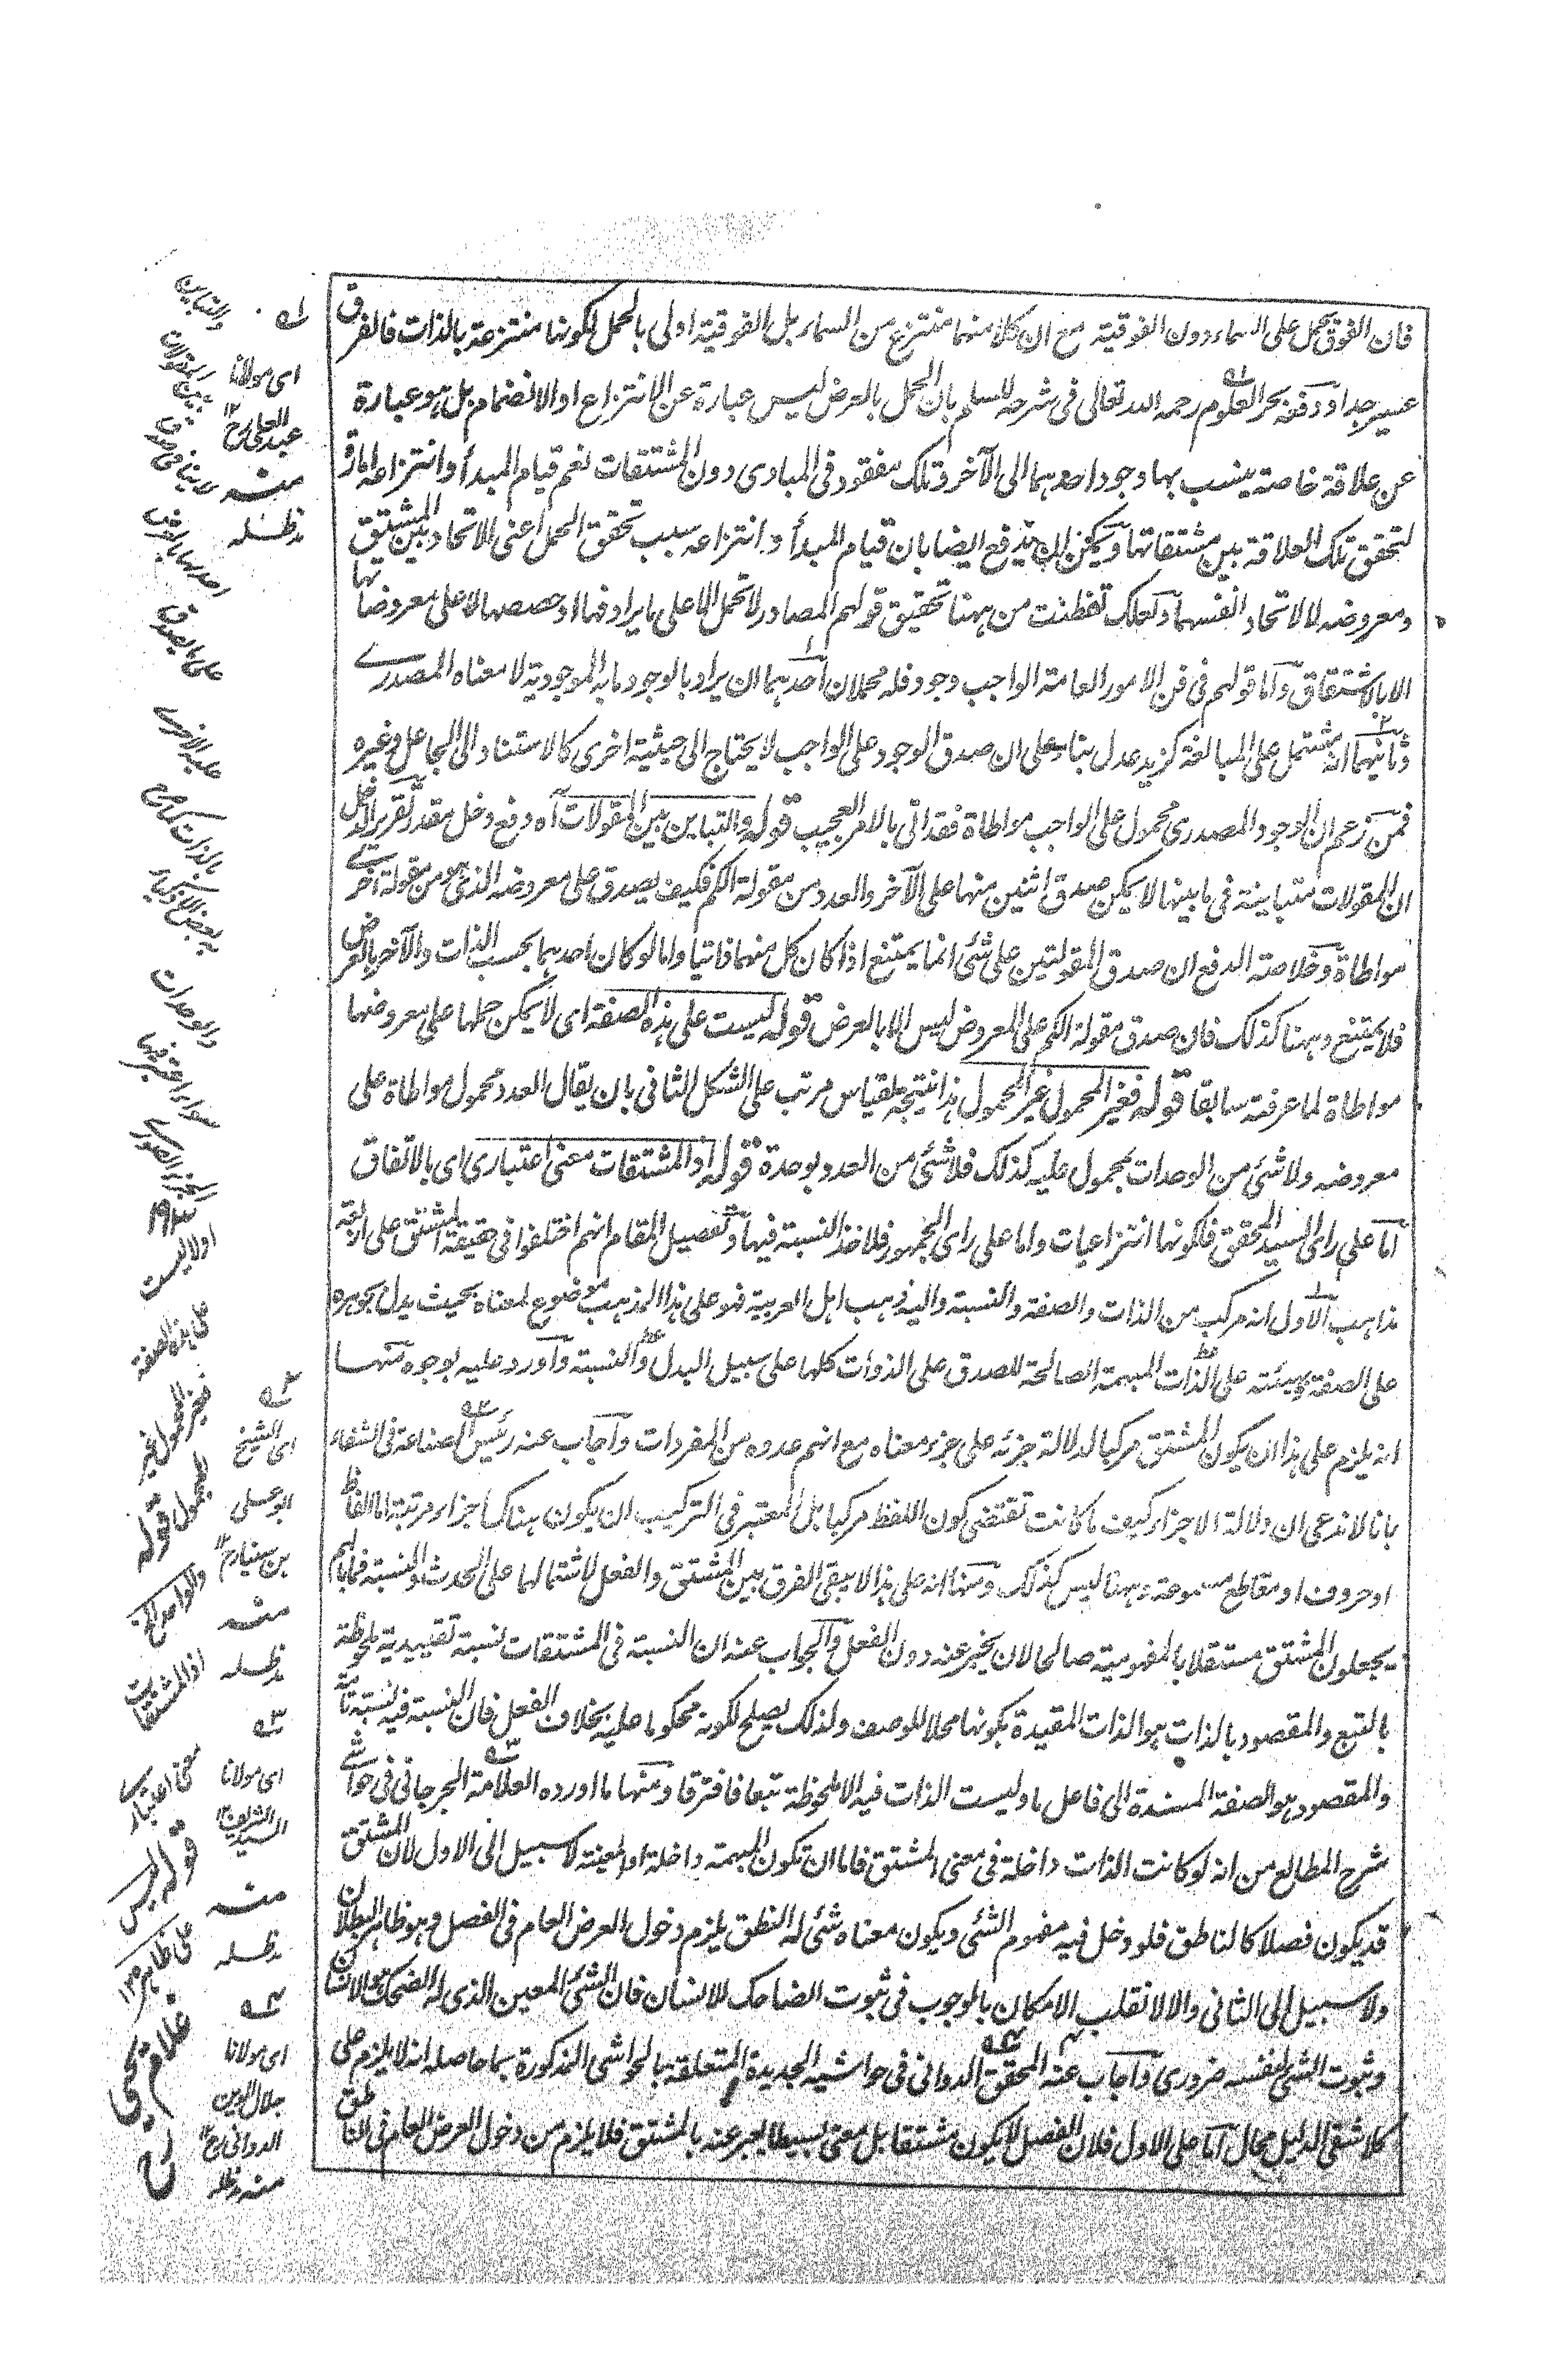 فان الفوق يحمل على السماء دون الفوقية مع ان كلا منهما منتزع من السماء بل الفوقية اولى بالحمل لكونها منتزعة بالذات فالفرق
عسير جدا ودفعه بحر العلوم رحمه الله تعالى فى شرحه للسلم بان الحمل بالعرض ليس عبارة عن الانتزاع او الانضمام بل هو عبارة
عن علاقة خاصته ينسب بها وجود احدهما الى الآخر وتلك مفقود فى المبادى دون المشتقات نعم قيام المبدأ وانتزاعه امارة
لتحقق تلك العلاقة بين مشتقاتها ويمكن ان يدفع ايضا بان قيام المبدأ و انتزاعه سبب تحقق الحمل اعنى الاتحاد بين المشتق
ومعروضه لا لاتحاد انفسهما ولعلك تفطنت من ههنا تحقيق قولهم المصادر لا تحمل الا على ما يرادفها او حصصها لا على معروضاتها
الا بالاشتقاق واما قولهم فى فن الامور العامة الواجب وجود فله محملان احدهما ان يراد بالوجود ما به الموجودية لا معناه المصدرے
وثانيهما انه يشتمل على المبالغة كزيد عدل بناء على ان صدق الوجود على الواجب لا يحتاج الى حيثية اخرى كالاستناد الى الجاعل وغيره
فمن زعم ان الوجود المصدرى محمول على الواجب مواطاة فقد اتى بالامر العجيب قوله والتباين بين المقولات آه دفع دخل مقدر تقرير الدخل
ان المقولات متباينة فى ما بينها لا يمكن صدق اثنين منها على الآخر والعدد من مقولة الكم فكيف يصدق على معروضه الذى هو من مقولة اخرے
مواطاة وخلاصته الدفع ان صدق المقولتين على شئ انما يمتنع اذا كان كل منهما ذاتيا واما لو كان احدهما بحسب الذات والآخر بالعرض
فلا يمتنع وههنا كذلك فان صدق مقولة الكم على المعروض ليس الا بالعرض قوله ليست على هذه الصفة اى لا يمكن حملها على معروضها
مواطاة لما عرفته سابقا قوله فغير المحمول غير المحمول هذا نتيجة لقياس مرتب على الشكل الثانى بان يقال العدد محمول مواطاة على
معروضه ولا شئ من الوحدات بمحمول عليه كذلك فلا شئ من العدد بوحدة قوله اذ المشتقات معنى اعتبارى اى بالاتفاق
اما على راى السيد المحقق فلكونها انتزاعيات واما على راى الجمهور فلاخذ النسبة فيها وتفصيل المقام انهم اختلفوا فى حقيقة المشتق على اربعة
مذاهب الاول انه مركب من الذات والصفة والنسبة واليه ذهب اهل العربية فهو على هذا المذهب موضوع لمعناه بحيث يدل بجوهره
على الصفة وبهيئته على الذات المبهمة الصالحة للصدق على الذوات كلها على سبيل البدل والنسبة واورد عليه بوجوه منها
انه يلزم على هذا ان يكون المشتق مركبا لدلالة جزئه على جزء معناه مع انهم عدوه من المفردات واجاب عنه رئيس الصناعة فى الشفاء
بانا لا ندعى ان دلالة الاجزاء كيف ما كانت تقتضى كون اللفظ مركبا بل المعتبر فى التركيب ان يكون هناك اجزاء مرتبة اما الفاظ
او حروف او مقاطع مسموعة وههنا ليس كذلك ومنها انه على هذا لا يبقى الفرق بين المشتق والفعل لاشتمالهما على الحدث والنسبة فما بالهم
يجعلون المشتق مستقلا بالمفهومية صالحا لان يخبر عنه دون الفعل والجواب عنه ان النسبة فى المشتقات نسبة تقييدية ملحوظة
بالتبع والمقصود بالذات هو الذات المقيدة بكونها محلا للوصف ولذلك يصلح لكونه محكوما عليه بخلاف الفعل فان النسبة فيه نسبة تامة
والمقصود هو الصفة المسندة الى فاعل ما وليست الذات فيه الا ملحوظة تبعا فافترقا ومنها ما اورده العلامة الجرجانى فى حواشے
شرح المطالع من انه لو كانت الذات داخلة فى معنى المشتق فاما ان تكون المبهمة داخلة او المعينة لا سبيل الى الاول لان المشتق
قد يكون فصلا كالناطق فلو دخل فيه مفهوم الشئ ويكون معناه شئ له النطق يلزم دخول العرض العام فى الفصل وهو ظاهر البطلان
ولا سبيل الى الثانى والا لانقلب الامكان بالوجوب فى ثبوت الضاحك للانسان فان الشئ المعين الذى له الضحك هو الانسان
وثبوت الشئ لنفسه ضرورى واجاب عنه المحقق الدوانى فى حواشيه الجديدة المتعلقة بالحواشى المذكورة بما حاصله انه لا يلزم على
كلا شقى الدليل محال اما على الاول فلان الفصل لا يكون مشتقا بل معنى بسيطا يعبر عنه بالمشتق فلا يلزم من دخول العرض العام فى الناطق
اى مولانا
عبد العلى رح
منه
مد ظله
اى الشيخ
ابو على
بن سينا رح
منه
مد ظله
اى مولانا
السيد الشريف
منه
مد ظله
اى مولانا
جلال الدين
الدوانى رح
منه مد ظله
والتباين
بين المقولات
احدهما بالذات
على ما يصدق
عليه الآخر
بالذات
والوحدات
اولا ليست
على هذه الصفة
فغير المحمول غير
المحمول قوله
اذ المشتقات
معنى اعتبارى
قوله ليس
على ظاهره ١٢
غلام يحيى
رح